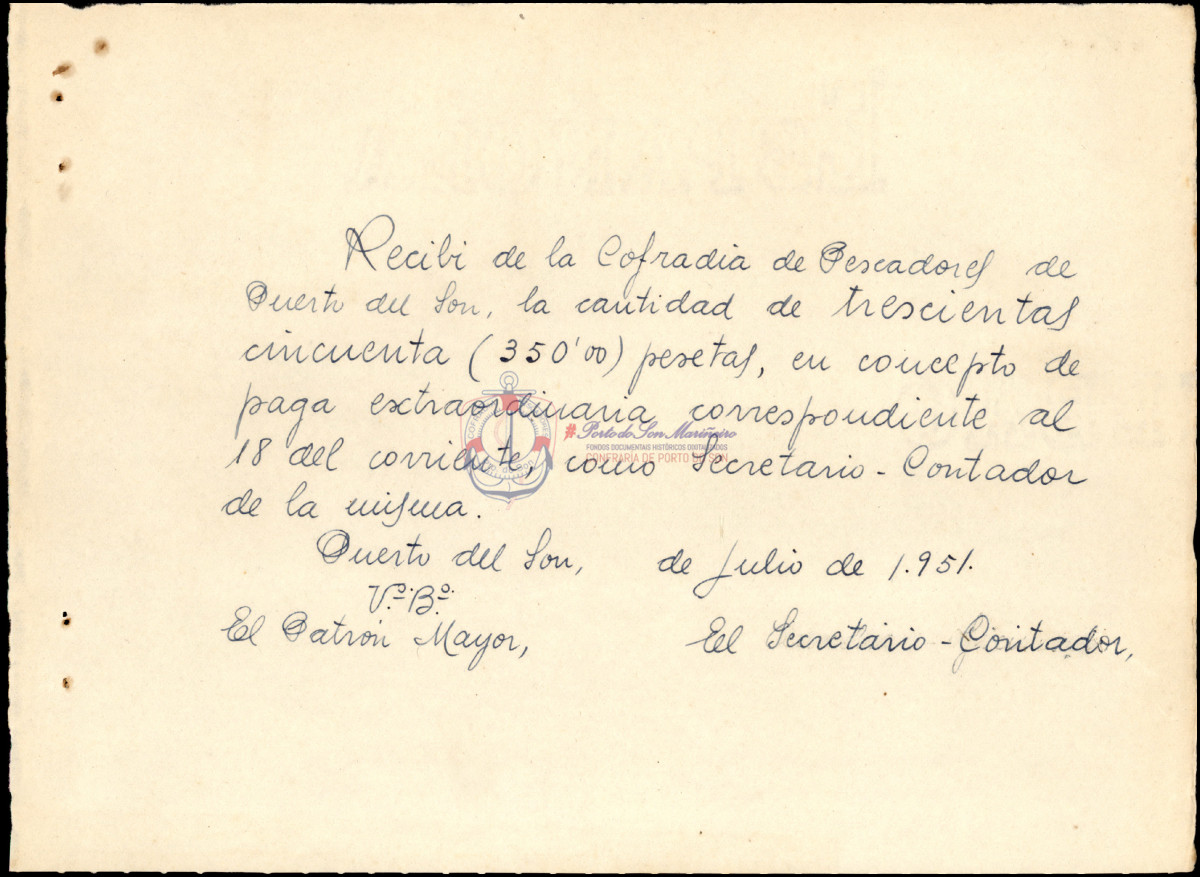 Recibi de la Cofradia de Pescadores de
Puerto del Son, la cantidad de trescientas
cincuenta (350'00) pesetas, en concepto de
paga extraordinaria correspondiente al
#Porto do Son Mariñeiro
FONDOS DOCUMENTAIS HISTÓRICOS DIXITALIZADOS
CONFRARÍA DE PORTO DO SON
18 del corriente, como Secretario-Contador
de la misma.
Puerto del Son, de Julio de 1.951.
V.º B.º
El Patrón Mayor, El Secretario-Contador,